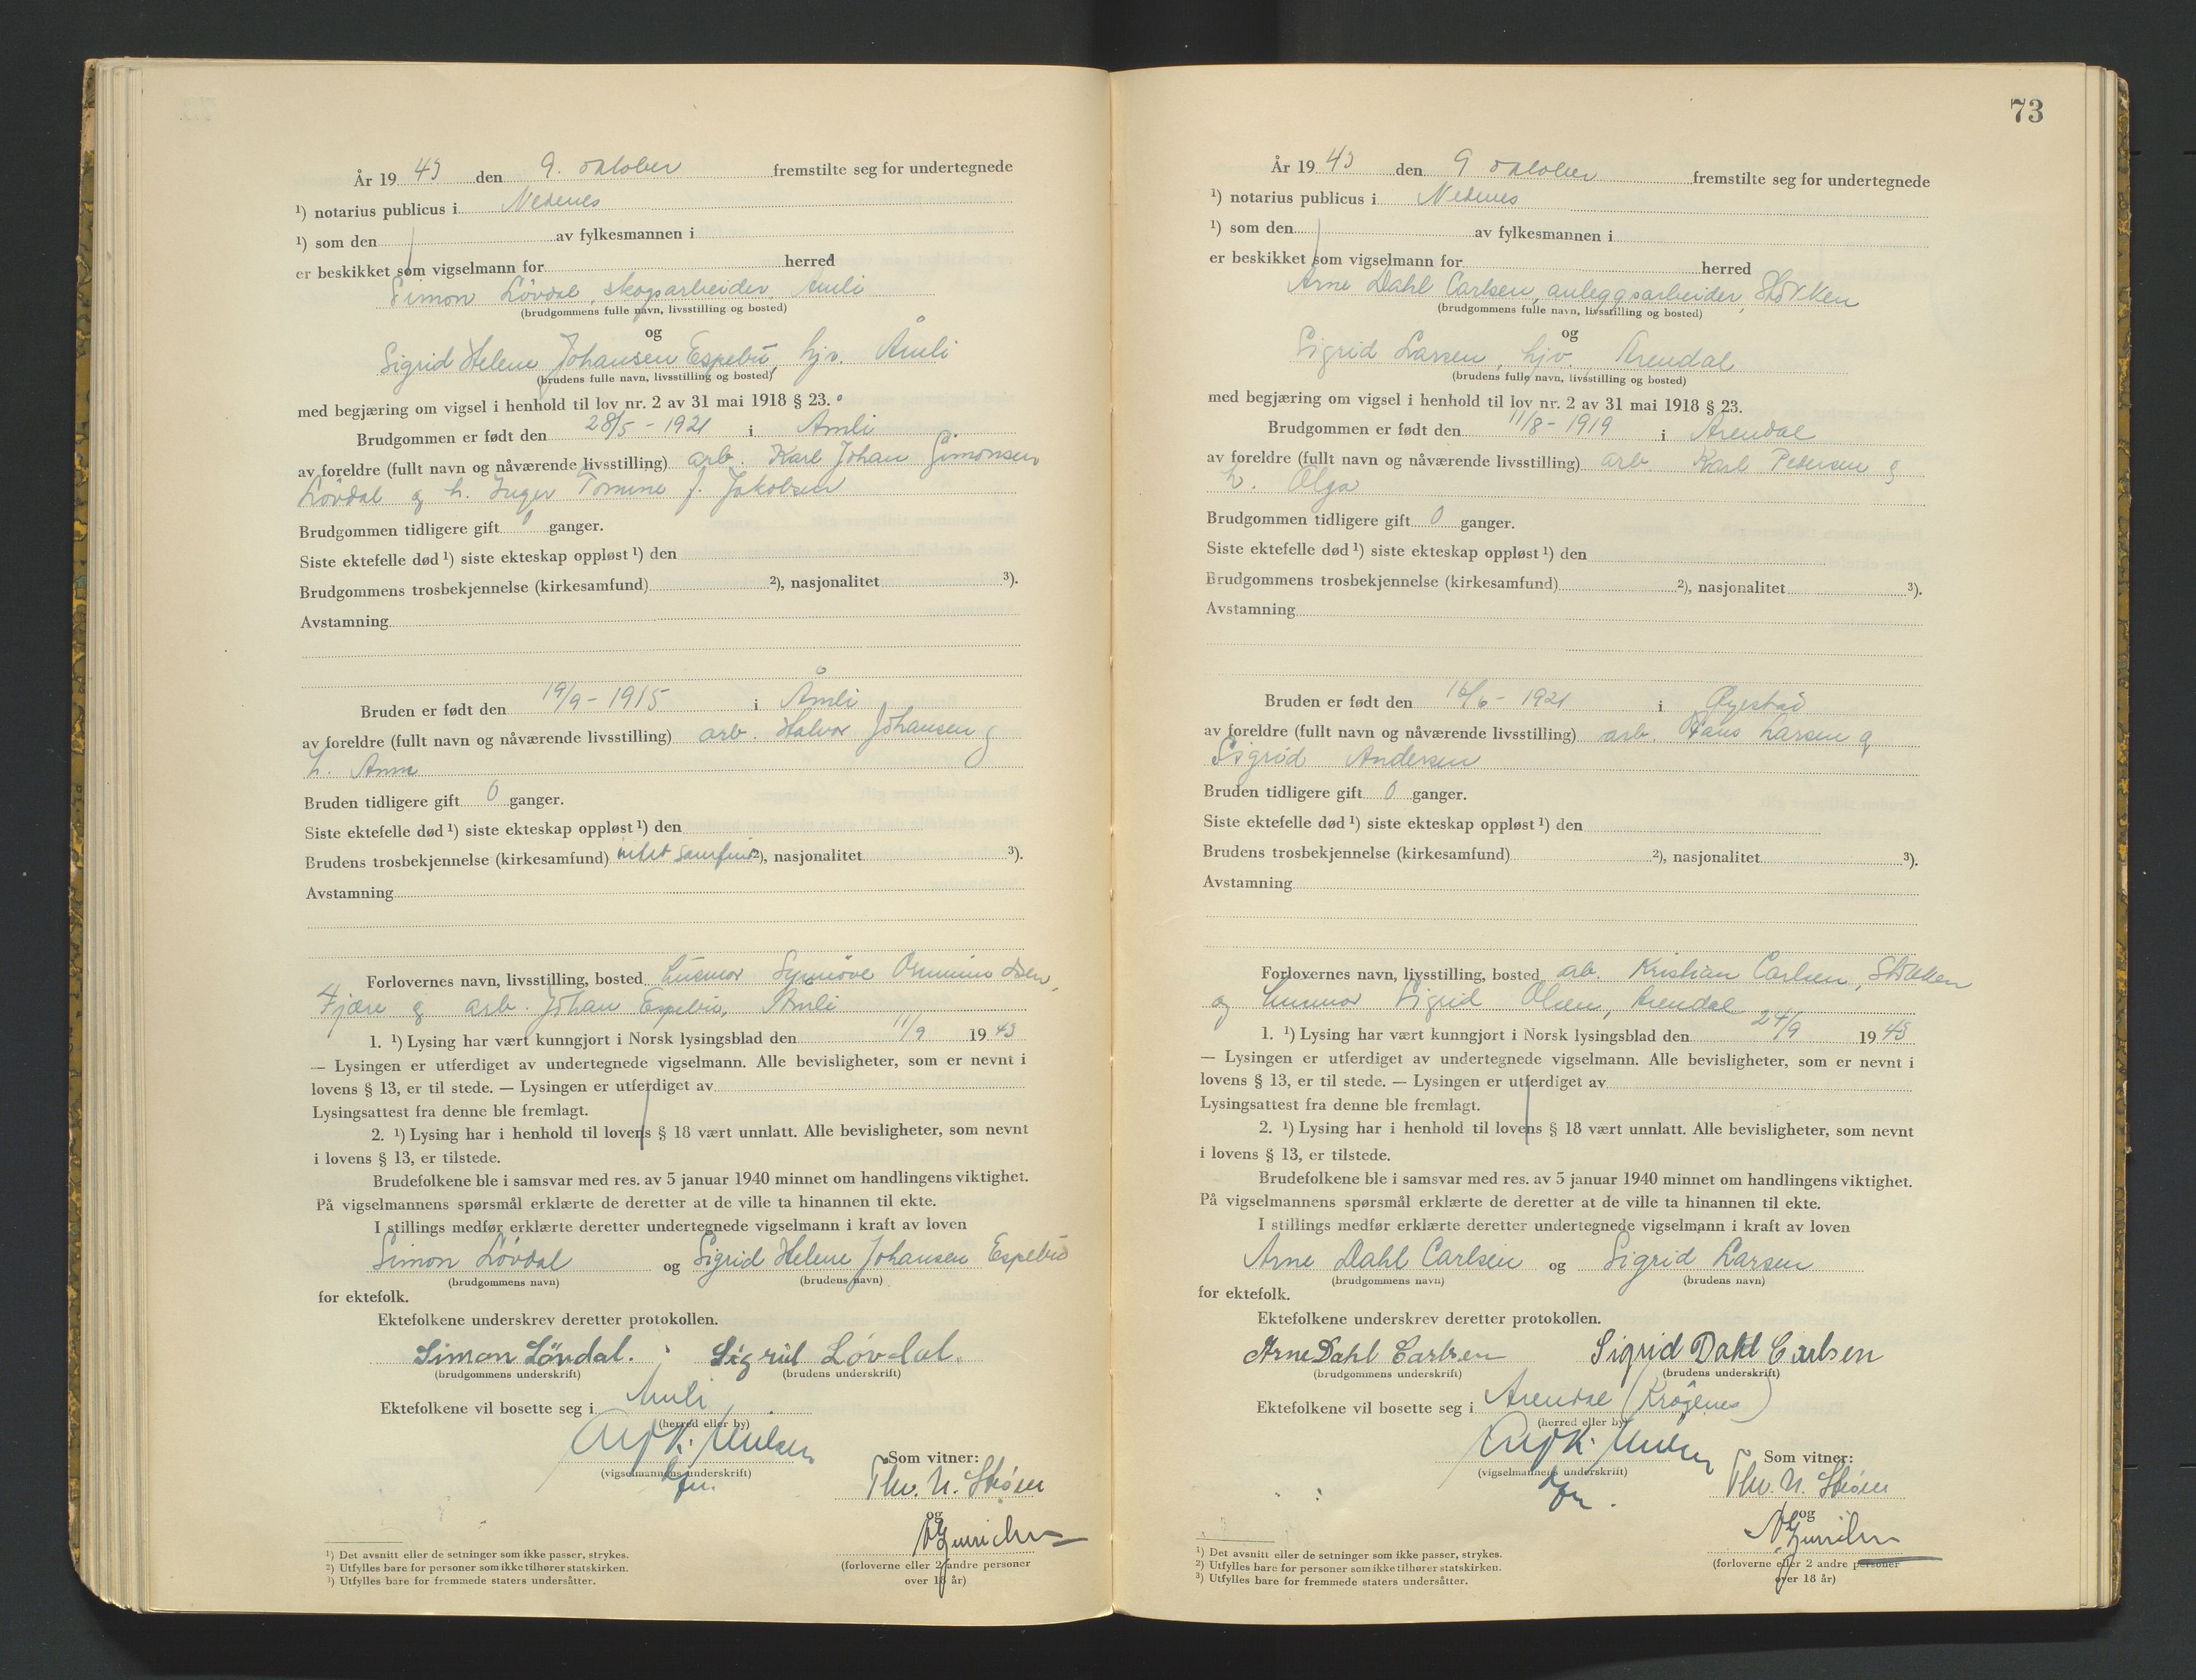 År 19 43 den 9. oktober fremstilte seg for undertegnede
¹) notarius publicus i Nedenes
¹) som den av fylkesmannen i
er beskikket som vigselmann for herred
Simon Lövdal, skogsarbeider Åmli
(brudgommens fulle navn, livsstilling og bosted)
og
Sigrid Helene Johansen Espebu, hjv. Åmli
(brudens fulle navn, livsstilling og bosted)
med begjæring om vigsel i henhold til lov nr. 2 av 31 mai 1918 § 23.
Brudgommen er født den 28/5 - 1921 i Åmli
av foreldre (fullt navn og nåværende livsstilling) arb. Karl Johan Simonsen
Lövdal og h. Inger Tomine f. Jakobsen
Brudgommen tidligere gift 0 ganger.
Siste ektefelle død ¹) siste ekteskap oppløst ¹) den
Brudgommens trosbekjennelse (kirkesamfund) ²), nasjonalitet ³).
Avstamning
Bruden er født den 19/9 - 1915 i Åmli
av foreldre (fullt navn og nåværende livsstilling) arb. Halvor Johansen og
h. Anna
Bruden tidligere gift 0 ganger.
Siste ektefelle død ¹) siste ekteskap oppløst ¹) den
Brudens trosbekjennelse (kirkesamfund) intet samfund ²), nasjonalitet ³).
Avstamning
Forlovernes navn, livsstilling, bosted husmor Synnöve Ommundsen,
Fjære og arb. Johan Espebu, Åmli
1. ¹) Lysing har vært kunngjort i Norsk lysingsblad den 11/9 19 43
— Lysingen er utferdiget av undertegnede vigselmann. Alle bevisligheter, som er nevnt i
lovens § 13, er til stede. — Lysingen er utferdiget av
Lysingsattest fra denne ble fremlagt.
2. ¹) Lysing har i henhold til lovens § 18 vært unnlatt. Alle bevisligheter, som nevnt
i lovens § 13, er tilstede.
Brudefolkene ble i samsvar med res. av 5 januar 1940 minnet om handlingens viktighet.
På vigselmannens spørsmål erklærte de deretter at de ville ta hinannen til ekte.
I stillings medfør erklærte deretter undertegnede vigselmann i kraft av loven
Simon Lövdal og Sigrid Helene Johansen Espebu
(brudgommens navn) (brudens navn)
for ektefolk.
Ektefolkene underskrev deretter protokollen.
Simon Lövdal. Sigrid Lövdal.
(brudgommens underskrift) (brudens underskrift)
Ektefolkene vil bosette seg i Åmli
(herred eller by)
(vigselmannens underskrift)
Som vitner:
Thv. N. Stöen
og
(forloverne eller 2 andre personer
over 18 år)
¹) Det avsnitt eller de setninger som ikke passer, strykes.
²) Utfylles bare for personer som ikke tilhører statskirken.
³) Utfylles bare for fremmede staters undersåtter.
73
År 19 43 den 9 oktober fremstilte seg for undertegnede
¹) notarius publicus i Nedenes
¹) som den av fylkesmannen i
er beskikket som vigselmann for herred
Arne Dahl Carlsen, anleggsarbeider, Stokken
(brudgommens fulle navn, livsstilling og bosted)
og
Sigrid Larsen, hjv. Arendal
(brudens fulle navn, livsstilling og bosted)
med begjæring om vigsel i henhold til lov nr. 2 av 31 mai 1918 § 23.
Brudgommen er født den 11/8 - 1919 i Arendal
av foreldre (fullt navn og nåværende livsstilling) arb. Karl Pedersen og
h. Olga
Brudgommen tidligere gift 0 ganger.
Siste ektefelle død ¹) siste ekteskap oppløst ¹) den
Brudgommens trosbekjennelse (kirkesamfund) ²), nasjonalitet ³).
Avstamning
Bruden er født den 16/6 - 1921 i Øyestad
av foreldre (fullt navn og nåværende livsstilling) arb. Hans Larsen og
Sigrid Andersen
Bruden tidligere gift 0 ganger.
Siste ektefelle død ¹) siste ekteskap oppløst ¹) den
Brudens trosbekjennelse (kirkesamfund) ²), nasjonalitet ³).
Avstamning
Forlovernes navn, livsstilling, bosted arb. Kristian Carlsen, Stokken
og husmor Sigrid Olsen, Arendal
1. ¹) Lysing har vært kunngjort i Norsk lysingsblad den 24/9 19 43
— Lysingen er utferdiget av undertegnede vigselmann. Alle bevisligheter, som er nevnt i
lovens § 13, er til stede. — Lysingen er utferdiget av
Lysingsattest fra denne ble fremlagt.
2. ¹) Lysing har i henhold til lovens § 18 vært unnlatt. Alle bevisligheter, som nevnt
i lovens § 13, er tilstede.
Brudefolkene ble i samsvar med res. av 5 januar 1940 minnet om handlingens viktighet.
På vigselmannens spørsmål erklærte de deretter at de ville ta hinannen til ekte.
I stillings medfør erklærte deretter undertegnede vigselmann i kraft av loven
Arne Dahl Carlsen og Sigrid Larsen
(brudgommens navn) (brudens navn)
for ektefolk.
Ektefolkene underskrev deretter protokollen.
Arne Dahl Carlsen Sigrid Dahl Carlsen
(brudgommens underskrift) (brudens underskrift)
Ektefolkene vil bosette seg i Arendal (Krögenes)
(herred eller by)
(vigselmannens underskrift)
Som vitner:
Thv. N. Stöen
og
(forloverne eller 2 andre personer
over 18 år)
¹) Det avsnitt eller de setninger som ikke passer, strykes.
²) Utfylles bare for personer som ikke tilhører statskirken.
³) Utfylles bare for fremmede staters undersåtter.